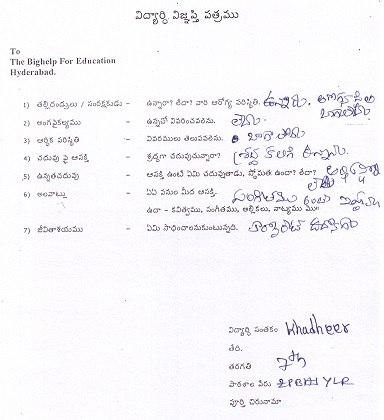 విద్యార్థి విజ్ఞప్తి పత్రము
To
The Bighelp For Education
Hyderabad.
1) తల్లిదండ్రులు / సంరక్షకుడు - ఉన్నారా? లేదా? వారి ఆరోగ్య పరిస్థితి. ఉన్నారు. ఆరోగ్య
బాగాలేదు
2) అంగవైకల్యము - ఉన్నచో వివరించవలెను. లేదు
3) ఆర్థిక పరిస్థితి - వివరములు తెలుపవలెను. బాగాలేదు
4) చదువు పై ఆసక్తి - శ్రద్ధగా చదువుచున్నారా? శ్రద్ధ కలిగి ఉన్నాను.
5) ఉన్నతచదువు - ఆసక్తి ఉంటే ఏమి చదువుతాడు, స్తోమత ఉందా? లేదా?
లేదు
6) అలవాట్లు - ఏఏ పనుల మీద ఆసక్తి. సంగీతము అంటే ఇష్టము
ఉదా - కవిత్వము, సంగీతము, ఆర్టికలు, నాట్యము మొ॥
7) జీవితాశయము - ఏమి సాధించాలనుకుంటున్నది.
విద్యార్థి సంతకం Khadheer
తేది.
తరగతి 7th
పాఠశాల పేరు SPBHS YLR
పూర్తి చిరునామా